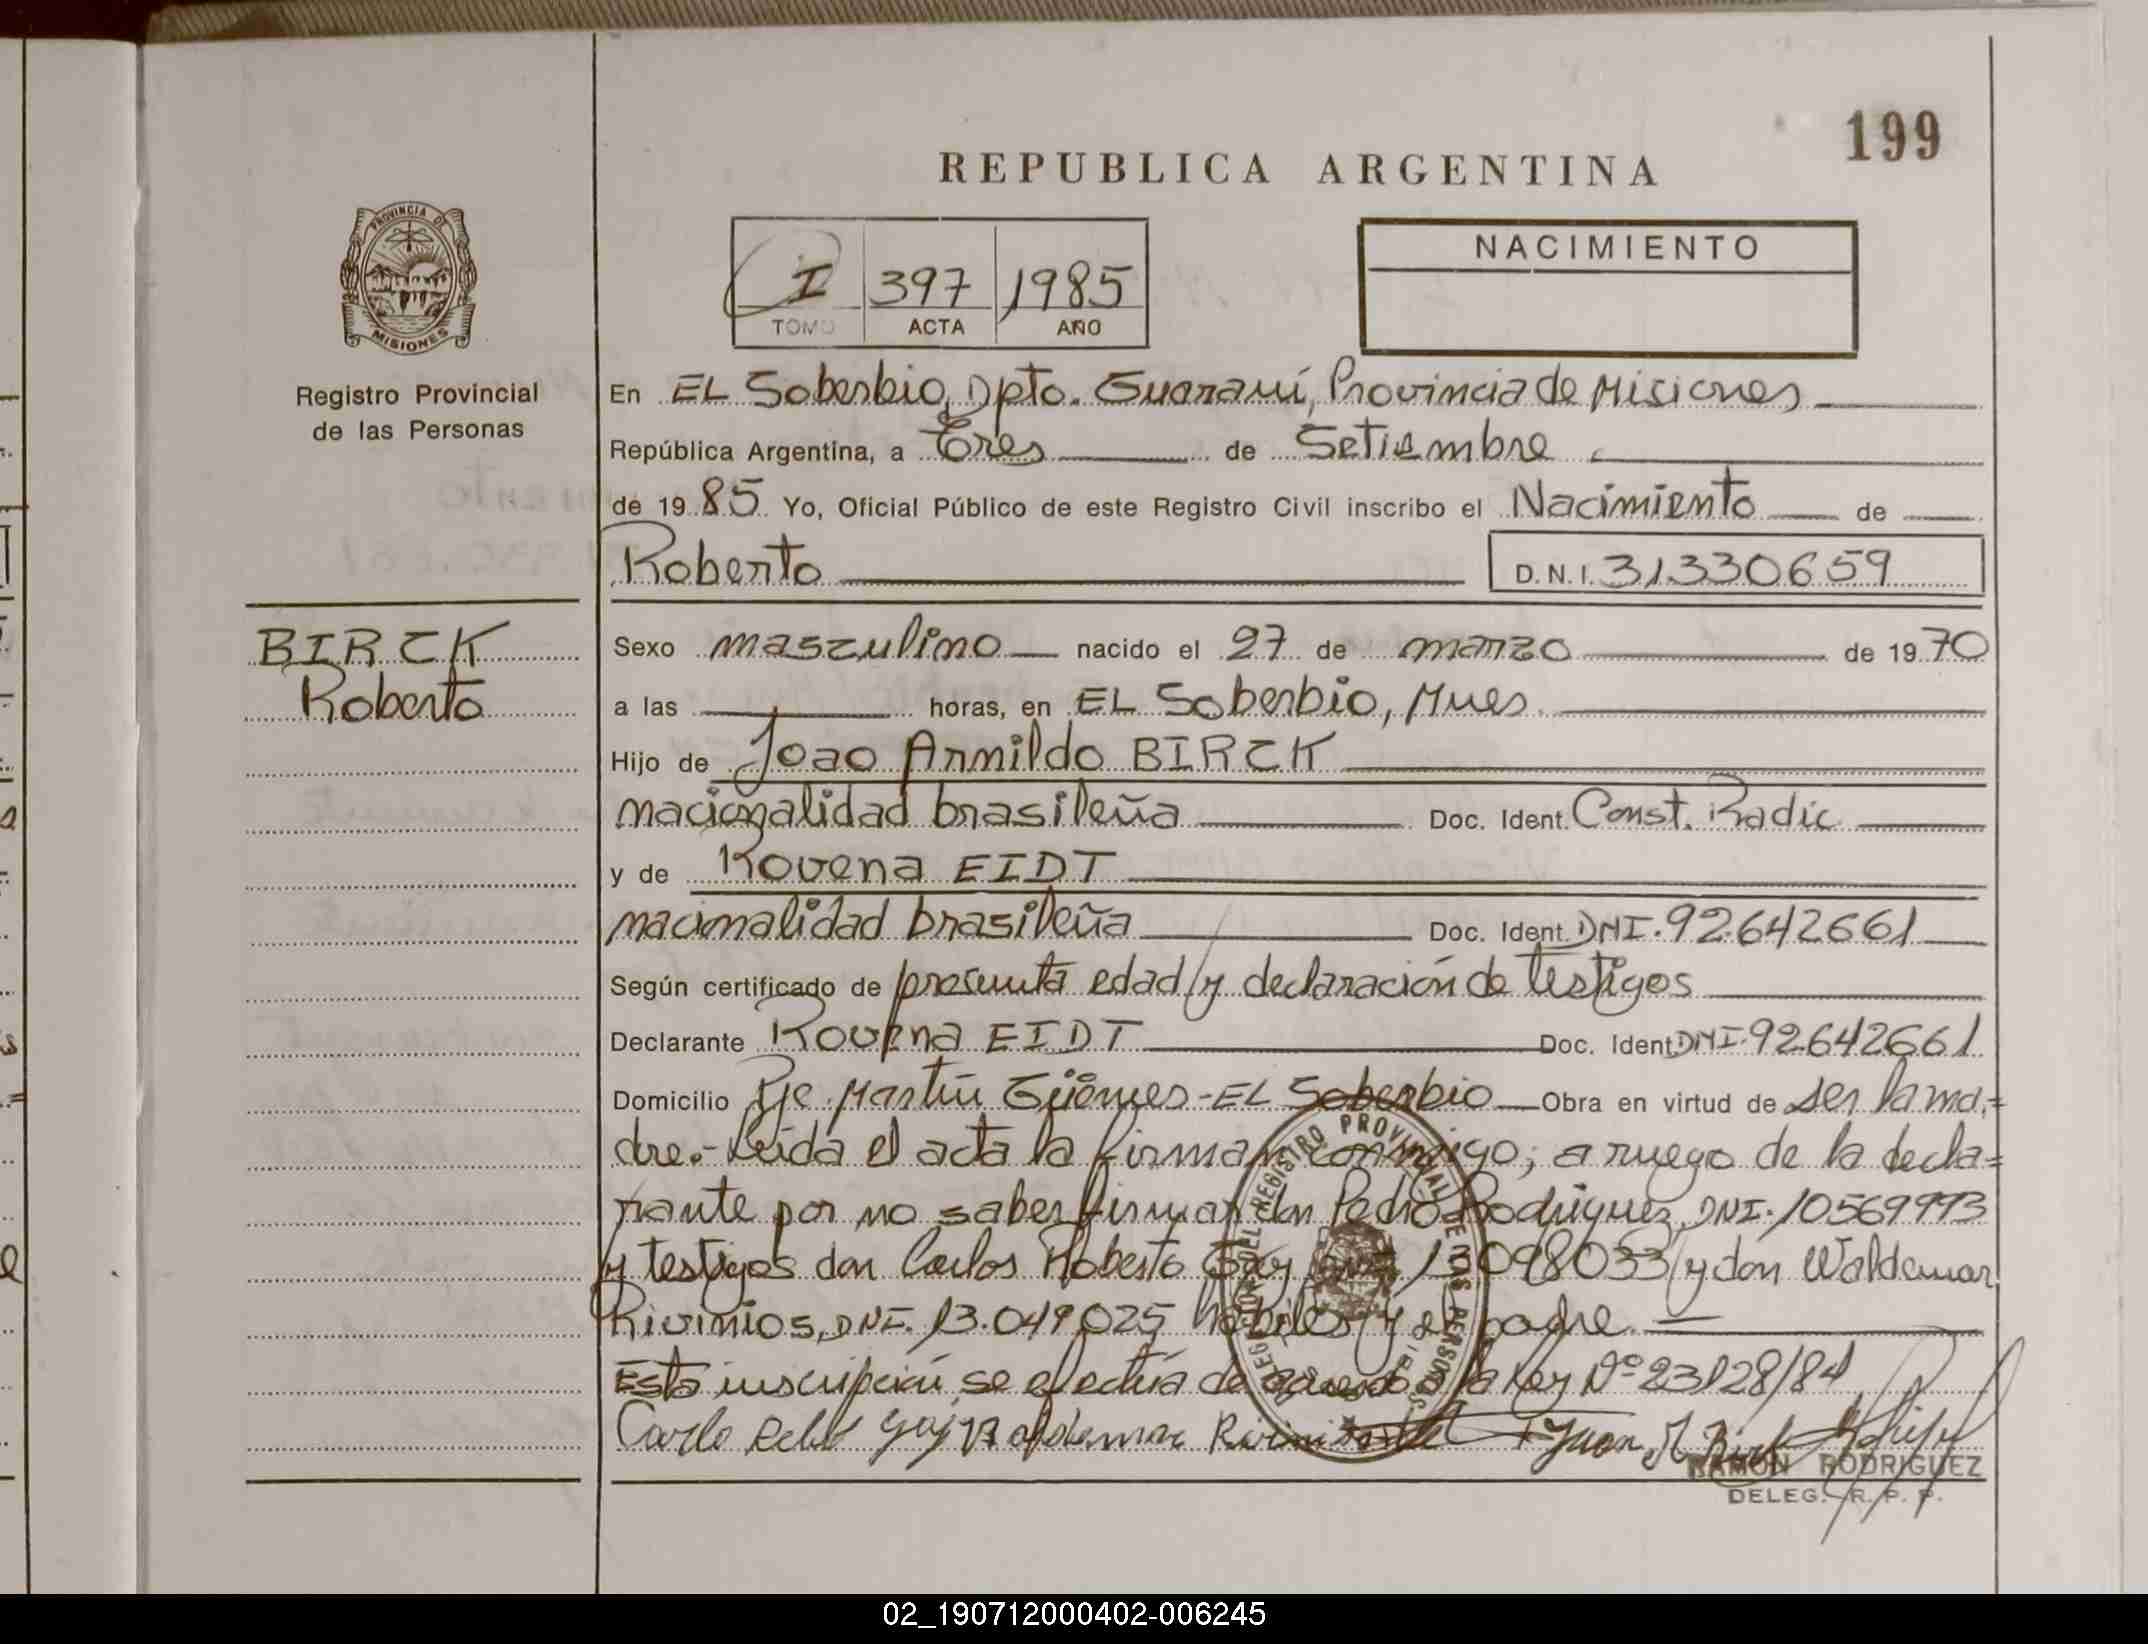 199
REPUBLICA ARGENTINA
PROVINCIA DE
MISIONES
Registro Provincial
de las Personas
I 397 1985
TOMO ACTA AÑO
NACIMIENTO
En EL Soberbio, Dpto. Guaraní, Provincia de Misiones
República Argentina, a Tres de Setiembre
de 1985 Yo, Oficial Público de este Registro Civil inscribo el Nacimiento de
Roberto D.N.I. 31330659
BIRCK
Roberto
Sexo masculino nacido el 27 de marzo de 1970
a las horas, en EL Soberbio, Mnes.
Hijo de Joao Armildo BIRCK
nacionalidad brasileña Doc. Ident. Const. Radic
y de Rovena EIDT
nacionalidad brasileña Doc. Ident. DNI. 92.642661
Según certificado de presunta edad y declaración de testigos
Declarante Rovena EIDT Doc. Ident. DNI. 92.642661
Domicilio Pje. Martín Güemes - EL Soberbio Obra en virtud de ser la ma=
dre.- Leida el acta la firman conmigo; a ruego de la decla=
rante por no saber firmar don Pedro Rodriguez, DNI. 10569993
y testigos don Carlos Roberto 13098033 y don Waldemar
Rivinios, DNI. 13.049.025 habiles y el padre.
Esta inscripción se efectúa de acuerdo a la Ley Nº 23128/84
DELEGACION DEL REGISTRO PROVINCIAL DE LAS PERSONAS
RAMON RODRIGUEZ
DELEG. R. P. P.
02_190712000402-006245